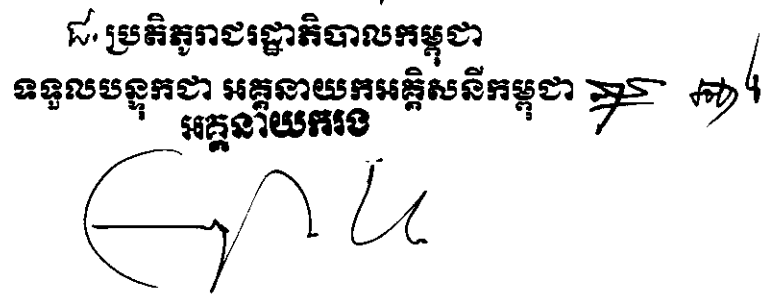 ជ. ប្រតិភូរាជរដ្ឋាភិបាលកម្ពុជា
ទទួលបន្ទុកជា អគ្គនាយកអគ្គិសនីកម្ពុជា
អគ្គនាយករង